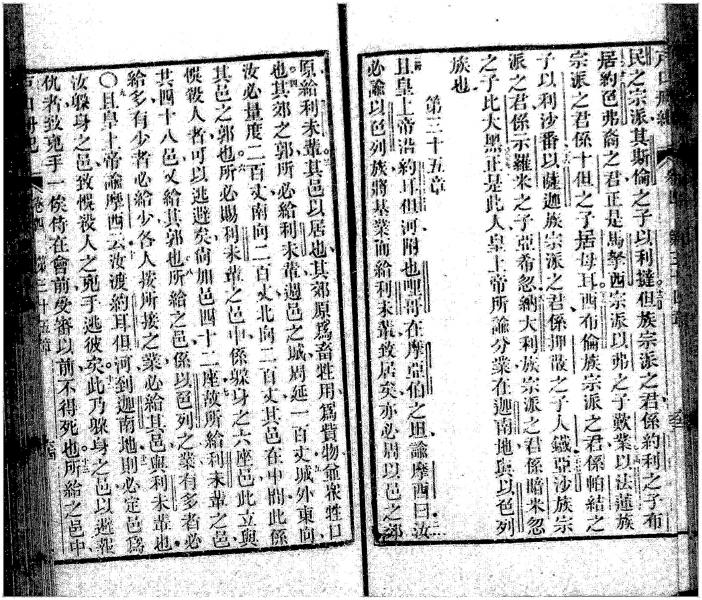 民之宗派其斯倫之子以利撻但族宗派之君係約利之子布
居約色弗裔之君正是馬拏西宗派以弗之子歎業以法蓮族
宗派之君係十但之子居母耳西布倫族宗派之君係帕結之
子以利沙番以薩迦族宗派之君係押散之子人鐵亞沙族宗
派之君係示羅米之子亞希忽納大利族宗派之君係暗米忽
之子比大黑正是此人皇上帝所諭分業在迦南地與以色列
族也
第三十五章
且皇上帝沿約耳但河附也哩哥在摩亞伯之坦諭摩西曰汝
必諭以色列族將基業而給利未輩致居矣亦必周以邑之郊
原給利未輩其邑以居也其郊原為畜牲用為貨物爺衆牲口
也其郊之郭所必給利未輩過邑之城周延一百丈城外東向
汝必量度二百丈南向二百丈北向二百丈其邑在中間此係
其邑之郭也所必賜利未輩之邑中係躲身之六座邑此立與
悞殺人者可以逃避矣尚加邑四十二座故所給利未輩之邑
共四十八邑又給其郭也所給之邑係以色列之業有多者必
給多有少者必給少各人按所接之業必給其邑與利未輩也
〇且皇上帝諭摩西云汝渡約耳但河到迦南地則必定邑為
汝躲身之邑致悞殺人之兇手逃彼矣此乃躲身之邑以避報
仇者致兇手一俟侍在會前受審以前不得死也所給之邑中
戶口冊紀 卷四 第三十五章